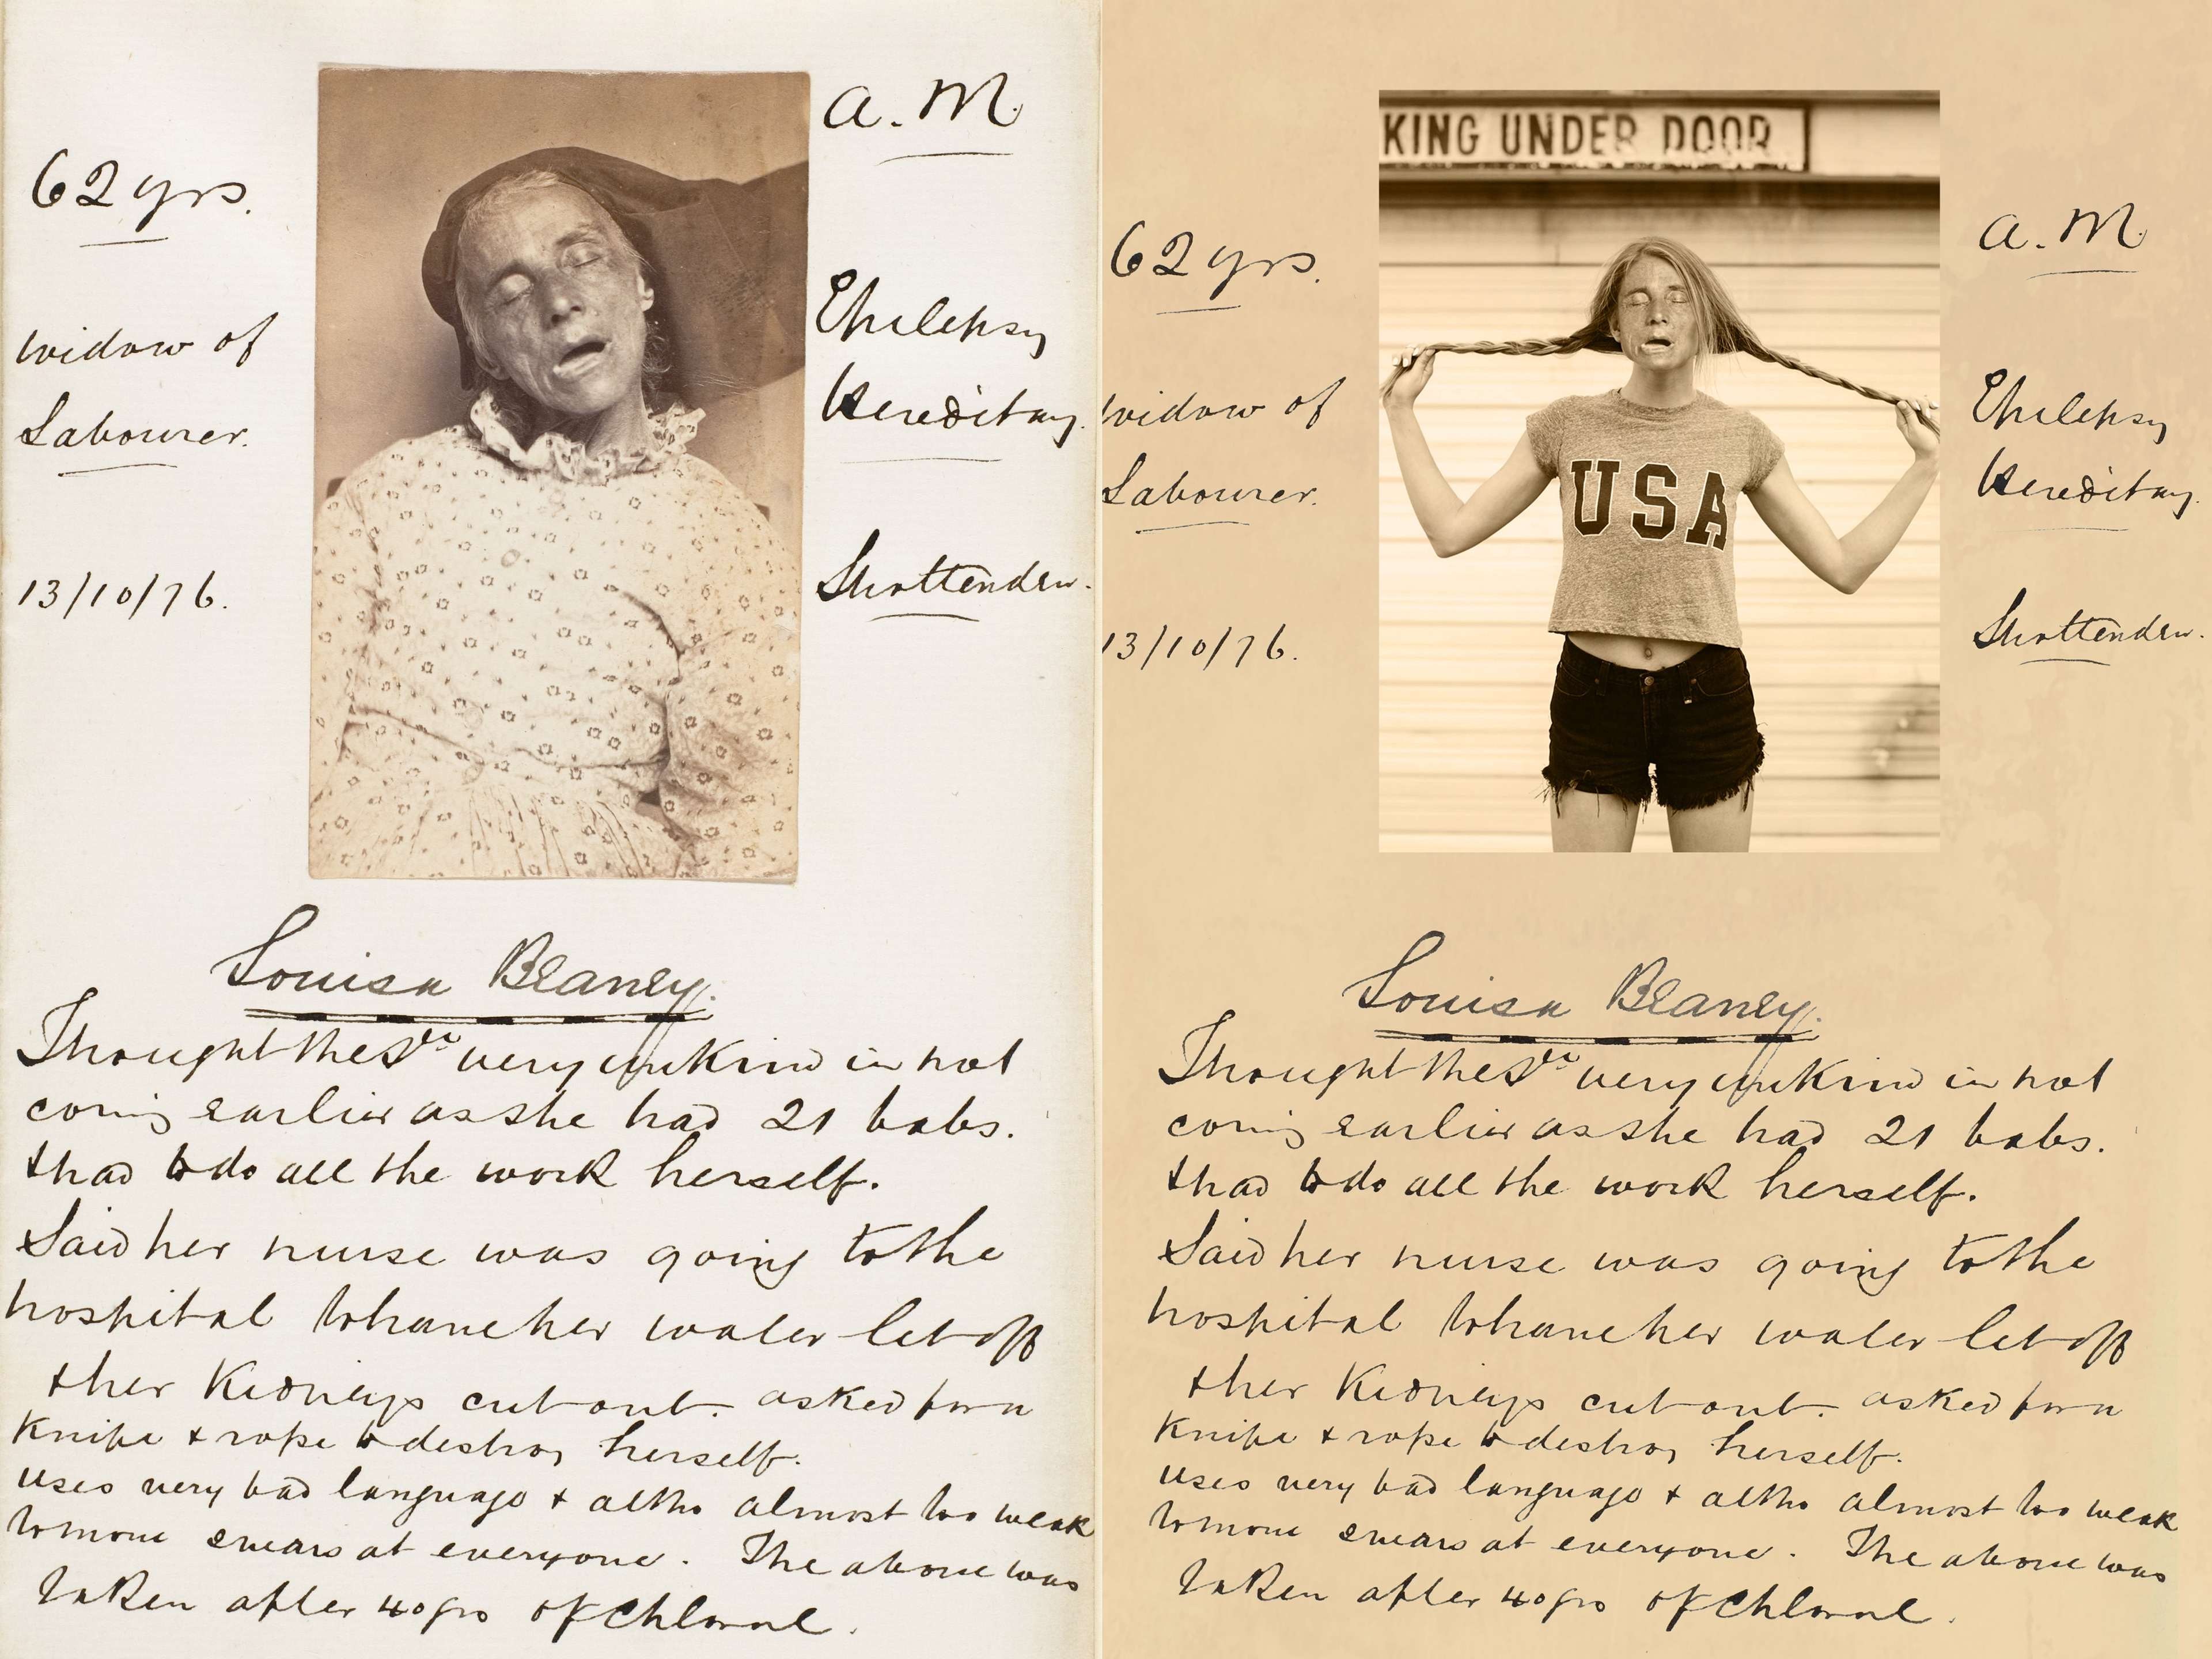 a. M
62 yrs.
Epilepsy
widow of
Hereditary.
Labourer.
13/10/76.
Louisa Blaney.
Thought the Dr very unkind in not
coming earlier as she had 21 babs.
+ had to do all the work herself.
Said her nurse was going to the
hospital to have her water let off
+ her Kidneys cut out. asked for a
Knife + rope to destroy herself.
uses very bad language + altho almost too weak
to move swears at everyone. The above was
taken after 40 grs of Chloral.
KING UNDER DOOR
a. M
62 yrs.
Epilepsy
widow of
Hereditary.
USA
Labourer.
13/10/76.
Louisa Blaney.
Thought the Dr very unkind in not
coming earlier as she had 21 babs.
+ had to do all the work herself.
Said her nurse was going to the
hospital to have her water let off
+ her Kidneys cut out. asked for a
Knife + rope to destroy herself.
uses very bad language + altho almost too weak
to move swears at everyone. The above was
taken after 40 grs of Chloral.